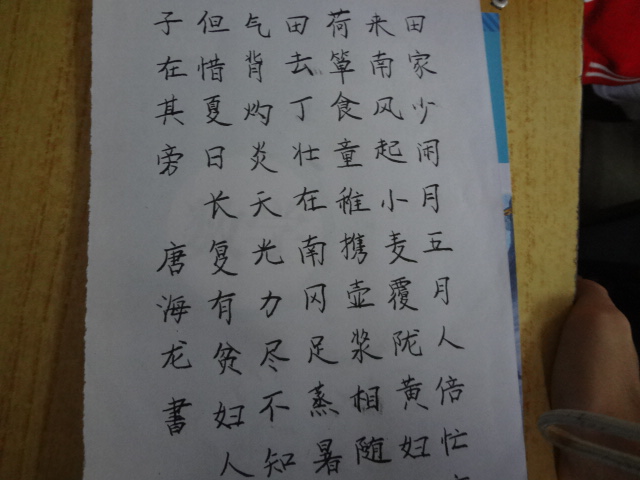 田家少闲月五月人倍忙
来南风起小麦覆陇黄妇
荷箪食童稚携壶浆相随
田去丁壮在南冈足蒸暑
气背灼炎天光力尽不知
但惜夏日长复有贫妇人
子在其旁 唐海龙書